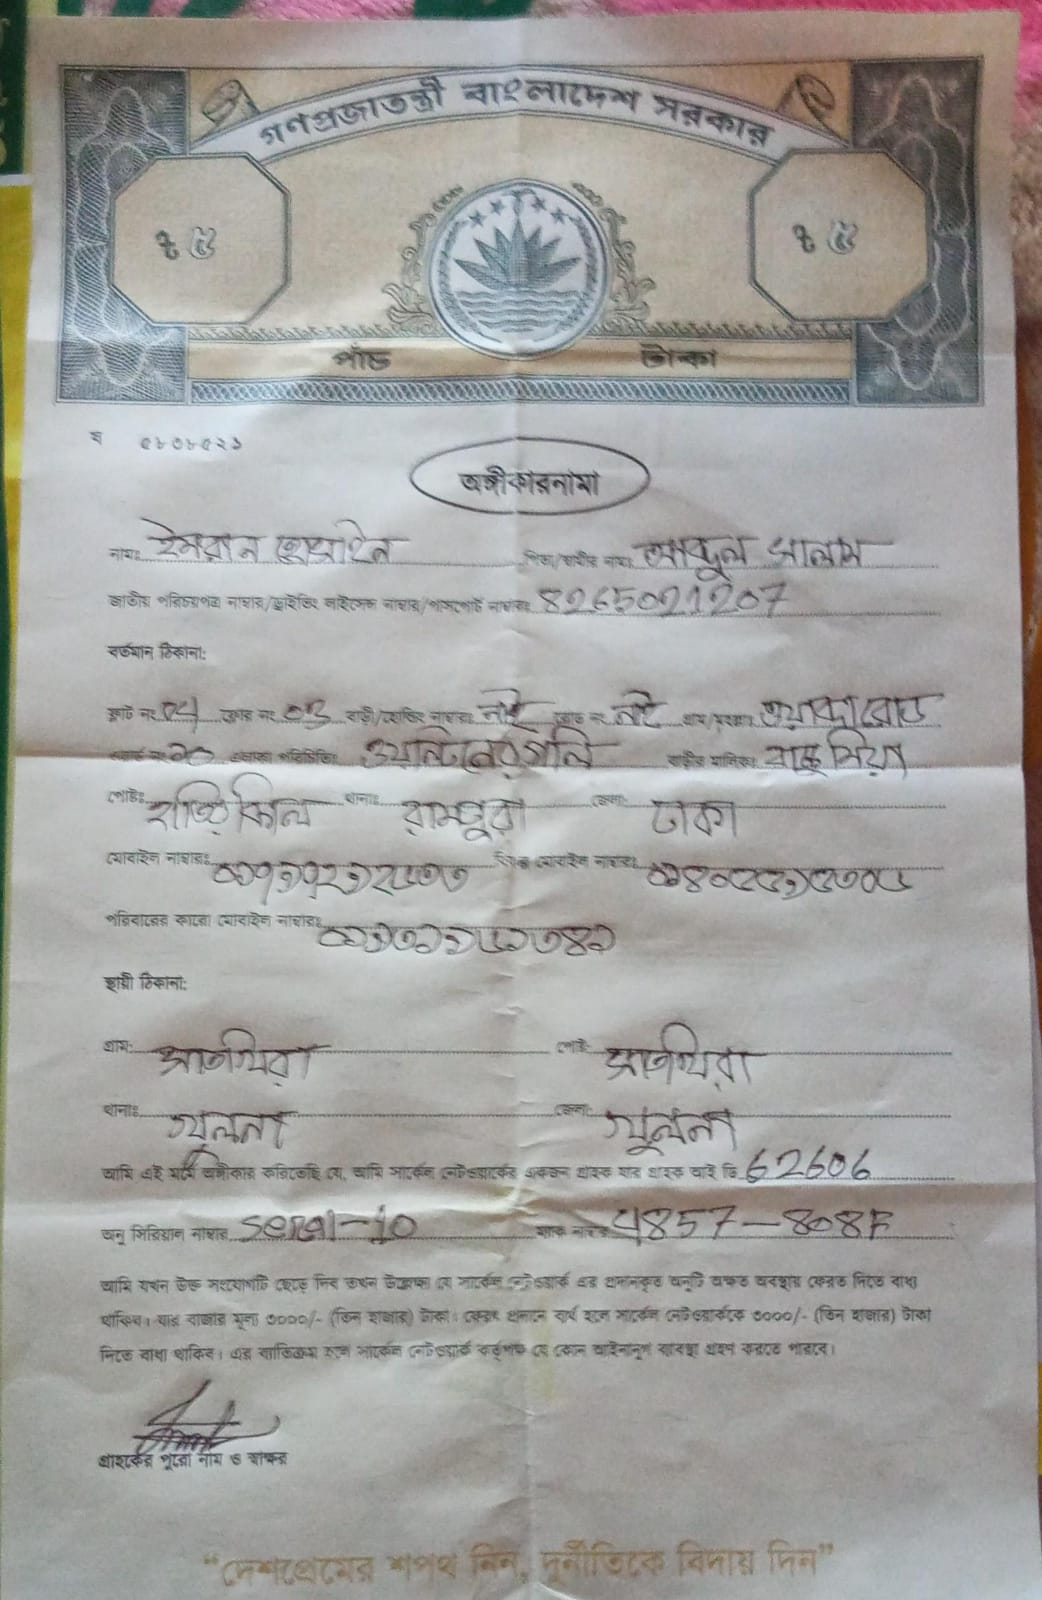 গণপ্রজাতন্ত্রী বাংলাদেশ সরকার
৳ ৫ ৳ ৫
পাঁচ টাকা
ষ ৫৮৩৮৫২১
অঙ্গীকারনামা
নামঃ ইমরান হোসাইন পিতা/স্বামীর নামঃ আব্দুল সালাম
জাতীয় পরিচয়পত্র নাম্বার/ড্রাইভিং লাইসেন্স নাম্বার/পাসপোর্ট নাম্বারঃ 8265021207
বর্তমান ঠিকানা:
ফ্ল্যাট নং ফ্লোর নং বাড়ী/হোল্ডিং নাম্বারঃ নাই রোড নং নাই গ্রাম/মহল্লাঃ ওয়াপদা রোড
এলাকা পরিচিতিঃ গলি বাড়ীর মালিকঃ বাচ্চু মিয়া
পোষ্টঃ থানাঃ রামপুরা জেলা: ঢাকা
মোবাইল নাম্বারঃ বিকল্প মোবাইল নাম্বারঃ
পরিবারের কারো মোবাইল নাম্বারঃ
স্থায়ী ঠিকানা:
গ্রাম: পোষ্ট:
থানাঃ খুলনা জেলা: খুলনা
আমি এই মর্মে অঙ্গীকার করিতেছি যে, আমি সার্কেল নেটওয়ার্কের একজন গ্রাহক যার গ্রাহক আই ডি 62606
অনু সিরিয়াল নাম্বার seral-10 ম্যাক নাম্বার 4857-808F
আমি যখন উক্ত সংযোগটি ছেড়ে দিব তখন উল্লেখ্য যে সার্কেল নেটওয়ার্ক এর প্রদানকৃত অনুটি অক্ষত অবস্থায় ফেরত দিতে বাধ্য
থাকিব। যার বাজার মূল্য ৩০০০/- (তিন হাজার) টাকা। ফেরৎ প্রদানে ব্যর্থ হলে সার্কেল নেটওয়ার্ককে ৩০০০/- (তিন হাজার) টাকা
দিতে বাধ্য থাকিব। এর ব্যতিক্রম হলে সার্কেল নেটওয়ার্ক কর্তৃপক্ষ যে কোন আইনানুগ ব্যবস্থা গ্রহণ করতে পারবে।
গ্রাহকের পুরো নাম ও স্বাক্ষর
“দেশপ্রেমের শপথ নিন, দুর্নীতিকে বিদায় দিন”